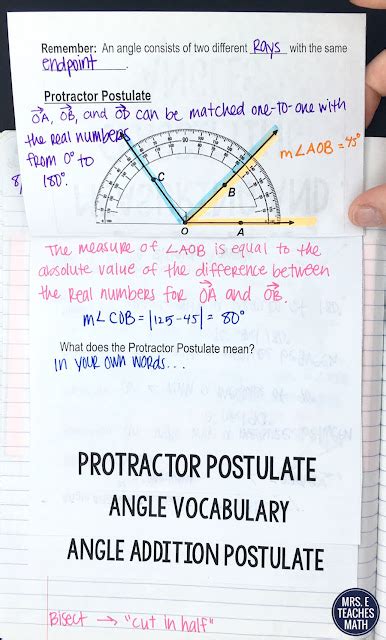 Remember: An angle consists of two different Rays with the same
endpoint.
Protractor Postulate
OA, OB, and OD can be matched one-to-one with
the real numbers
from 0° to
180°.
8/
m∠AOB = 45°
C
B
O
A
The measure of ∠AOB is equal to the
absolute value of the difference between
the real numbers for OA and OB.
m∠COB = |125-45| = 80°
What does the Protractor Postulate mean?
In your own words...
PROTRACTOR POSTULATE
ANGLE VOCABULARY
ANGLE ADDITION POSTULATE
Bisect → "cut in half"
MRS. E
TEACHES
MATH